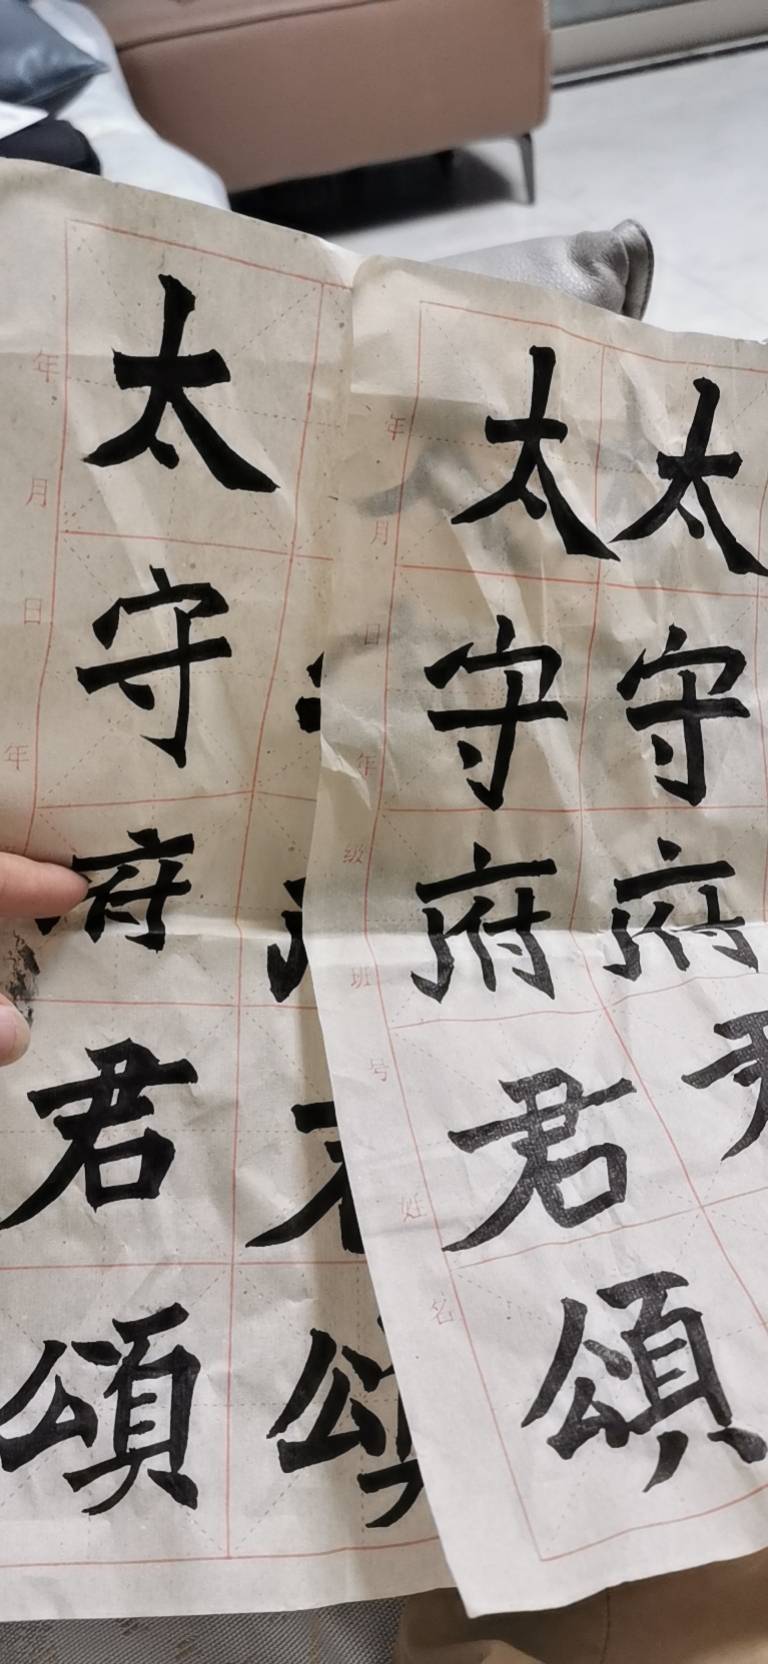 太守府君頌
年月日年
太守府君頌
太守府
年月日年级班号姓名